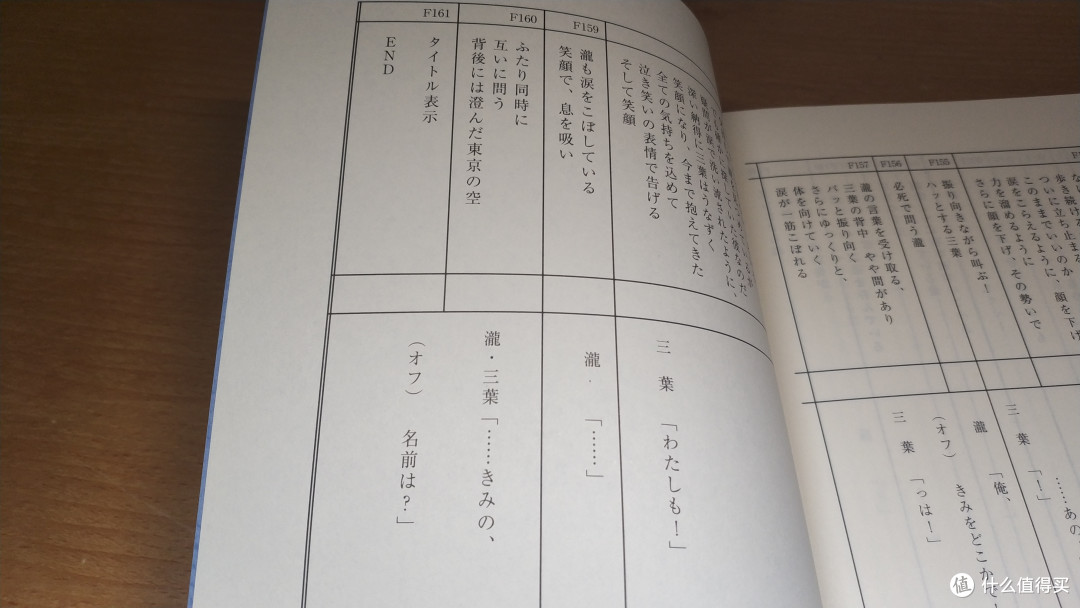 歩き続ける
ついに立ち止まる
このままでいいのか
涙をこらえるように、顔を下げ
力を溜めるように
さらに顔を下げ、その勢いで
……あの
F155
振り向きながら叫ぶ！
ハッとする三葉
三　葉　「！」
F156
必死で問う瀧
瀧　「俺、
（オフ）　きみをどこかで
F157
瀧の言葉を受け取る、
三葉の背中――やや間があり
パッと振り向く
さらにゆっくりと、
体を向けていく
涙が一筋こぼれる
三　葉　「っは！」
深い納得に三葉はうなずく
笑顔になり、今まで抱えてきた
全ての気持ちを込めて
泣き笑いの表情で告げる
そして笑顔
三　葉　「わたしも！」
F159
瀧も涙をこぼしている
笑顔で、息を吸い
瀧　「……」
F160
ふたり同時に
互いに問う
背後には澄んだ東京の空
瀧・三葉「……きみの、
（オフ）　名前は？」
F161
タイトル表示
END
值 什么值得买